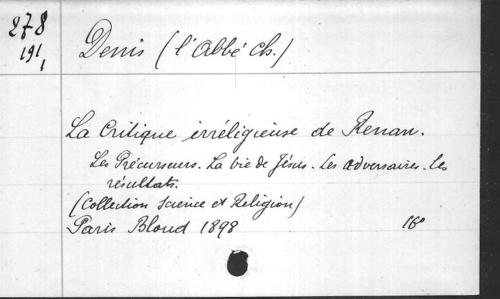 278
191
1
Denis (l'abbé Ch.)
La Critique irréligieuse de Renan.
Les Précurseurs. La vie de Jésus. Les adversaires. les
résultats.
(Collection Science et Religion)
Paris Bloud 1898 16°